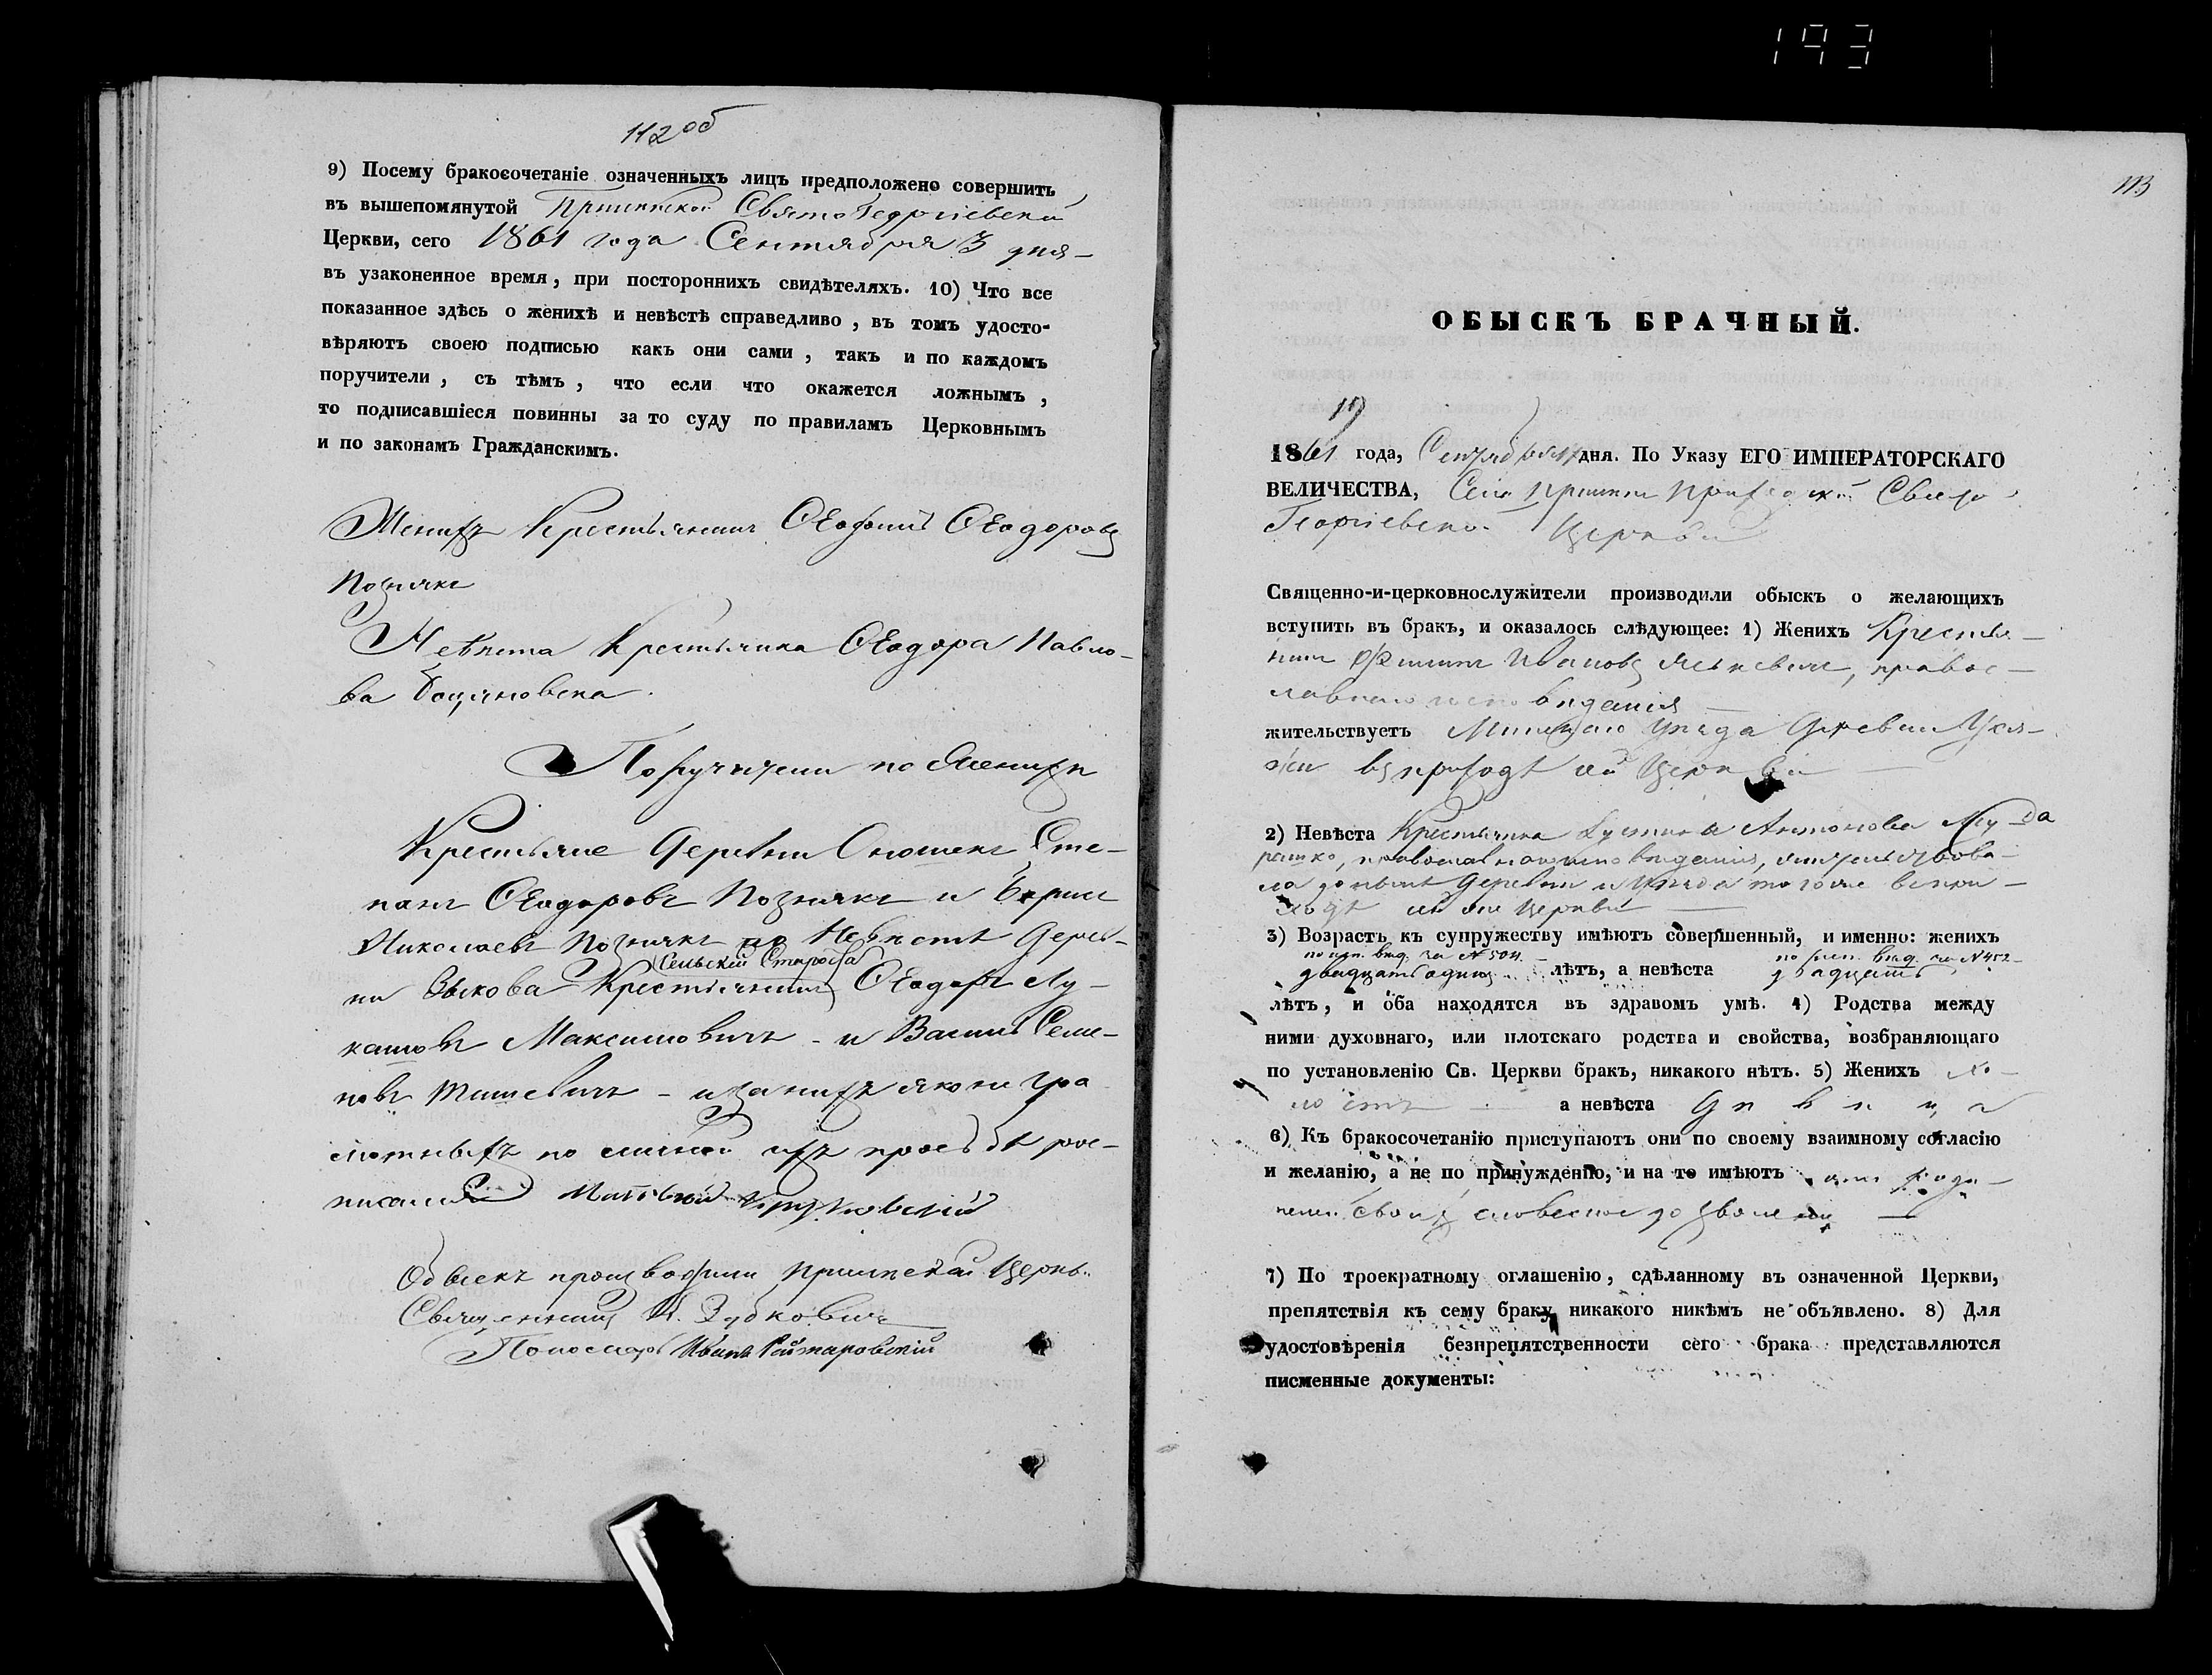 193
112об
9) Посему бракосочетаніе означенныхъ лицъ предположено совершить
въ вышепомянутой Свято Георгіевской
Церкви, сего 1861 года Сентября 3 дня
въ узаконенное время, при постороннихъ свидѣтеляхъ. 10) Что все
показанное здѣсь о женихѣ и невѣстѣ справедливо, въ томъ удосто-
вѣряютъ своею подписью какъ они сами, такъ и по каждомъ
поручители, съ тѣмъ, что если что окажется ложнымъ,
то подписавшіеся повинны за то суду по правиламъ Церковнымъ
и по законамъ Гражданскимъ.
Женихъ Крестьянинъ Ѳеодоровъ
Познякъ
Невѣста Крестьянка Ѳеодора Павло-
ва
Поручители по Женихѣ
Крестьяне Деревни Сте-
панъ Ѳеодоровъ Познякъ и Борисъ
Николаевъ Познякъ по Невѣстѣ Дерев-
Сельскій Староста
ни Крестьянинъ Ѳеодоръ Лу-
кашовъ Максимовичъ - и Василій Семе-
новъ - и за нихъ яко не гра
мотныхъ по личной ихъ прозьбѣ рос-
писался
Обыскъ производили Церкви
Священникъ
Пономарь Иванъ
113
ОБЫСКЪ БРАЧНЫЙ.
19
1861 года, Сентября дня. По Указу ЕГО ИМПЕРАТОРСКАГО
ВЕЛИЧЕСТВА, Села Приходской Свято
Георгіевской Церкви
Священно-и-церковнослужители производили обыскъ о желающихъ
вступить въ бракъ, и оказалось слѣдующее: 1) Женихъ Крестья-
нинъ Ивановъ правос-
лавнаго исповѣданія
жительствуетъ Минскаго уѣзда Деревни
въ приходѣ сей Церкви
2) Невѣста Крестьянка Антонова
православнаго исповѣданія, жительствова-
ла донынѣ Деревни и уѣзда того же въ при-
ходѣ сей же Церкви
3) Возрастъ къ супружеству имѣютъ совершенный, и именно: женихъ
двадцать одинъ лѣтъ, а невѣста двадцать
лѣтъ, и оба находятся въ здравомъ умѣ. 4) Родства между
ними духовнаго, или плотскаго родства и свойства, возбраняющаго
по установленію Св. Церкви бракъ, никакого нѣтъ. 5) Женихъ хо-
лостъ а невѣста дѣвица
6) Къ бракосочетанію приступаютъ они по своему взаимному согласію
и желанію, а не по принужденію, и на то имѣютъ
своихъ словесное дозволеніе
7) По троекратному оглашенію, сдѣланному въ означенной Церкви,
препятствія къ сему браку никакого никѣмъ не объявлено. 8) Для
удостовѣренія безпрепятственности сего брака представляются
писменные документы: